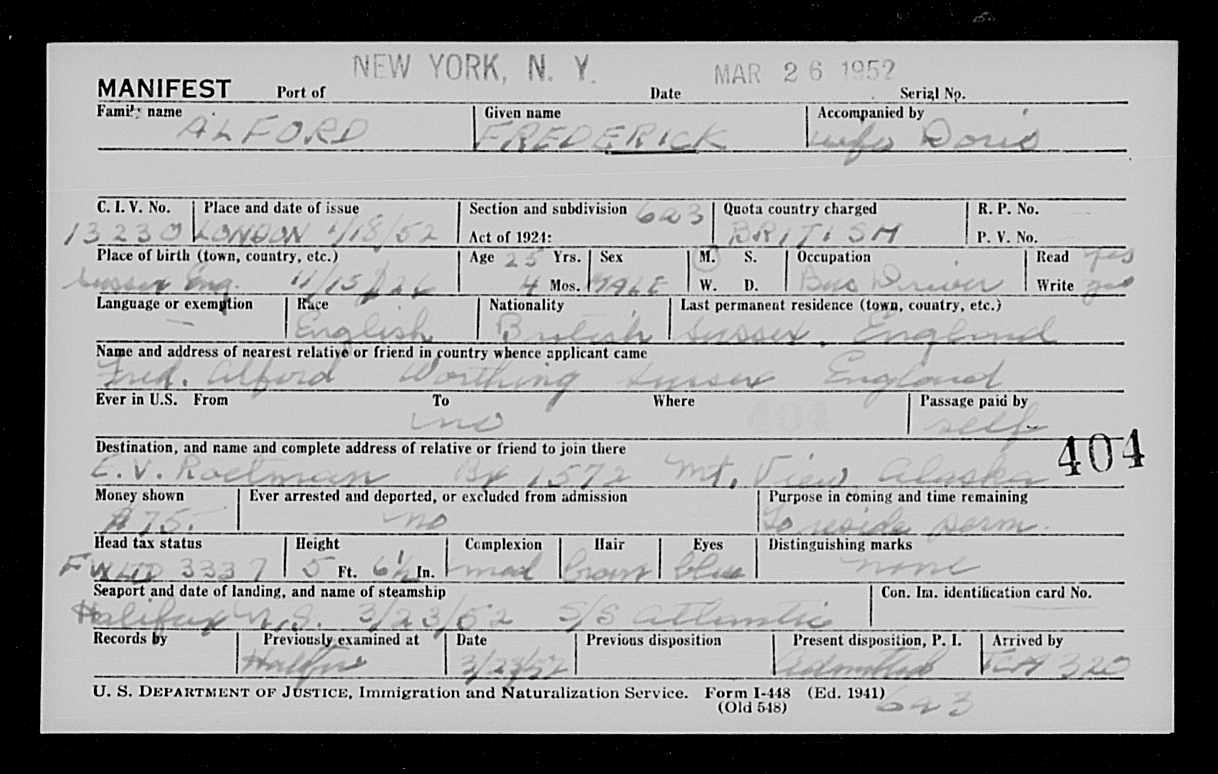 NEW YORK, N. Y. MAR 26 1952
MANIFEST Port of Date Serial No.
Family name Given name Accompanied by
ALFORD FREDERICK wife Doris
C. I. V. No. Place and date of issue Section and subdivision 6a3 Quota country charged R. P. No.
13230 LONDON 1/18/52 Act of 1924: BRITISH P. V. No.
Place of birth (town, country, etc.) Age 25 Yrs. Sex M. S. Occupation Read yes
Sussex Eng. 11/15/26 4 Mos. MALE W. D. Bus Driver Write yes
Language or exemption Race Nationality Last permanent residence (town, country, etc.)
— English British Sussex, England
Name and address of nearest relative or friend in country whence applicant came
Fred. Alford Worthing Sussex England
Ever in U.S. From To Where Passage paid by
no self
Destination, and name and complete address of relative or friend to join there
E.V. Roelman Bx 1572 Mt. View, Alaska 404
Money shown Ever arrested and deported, or excluded from admission Purpose in coming and time remaining
$75. no to reside perm.
Head tax status Height Complexion Hair Eyes Distinguishing marks
3337 5 Ft. 6½ In. med brown blue none
Seaport and date of landing, and name of steamship Con. Im. identification card No.
Halifax N.S. 3/23/52 S/S Atlantic
Records by Previously examined at Date Previous disposition Present disposition, P. I. Arrived by
Halifax 3/23/52 admitted 320
U. S. DEPARTMENT OF JUSTICE, Immigration and Naturalization Service. Form I-448 (Ed. 1941)
(Old 548) 6a3